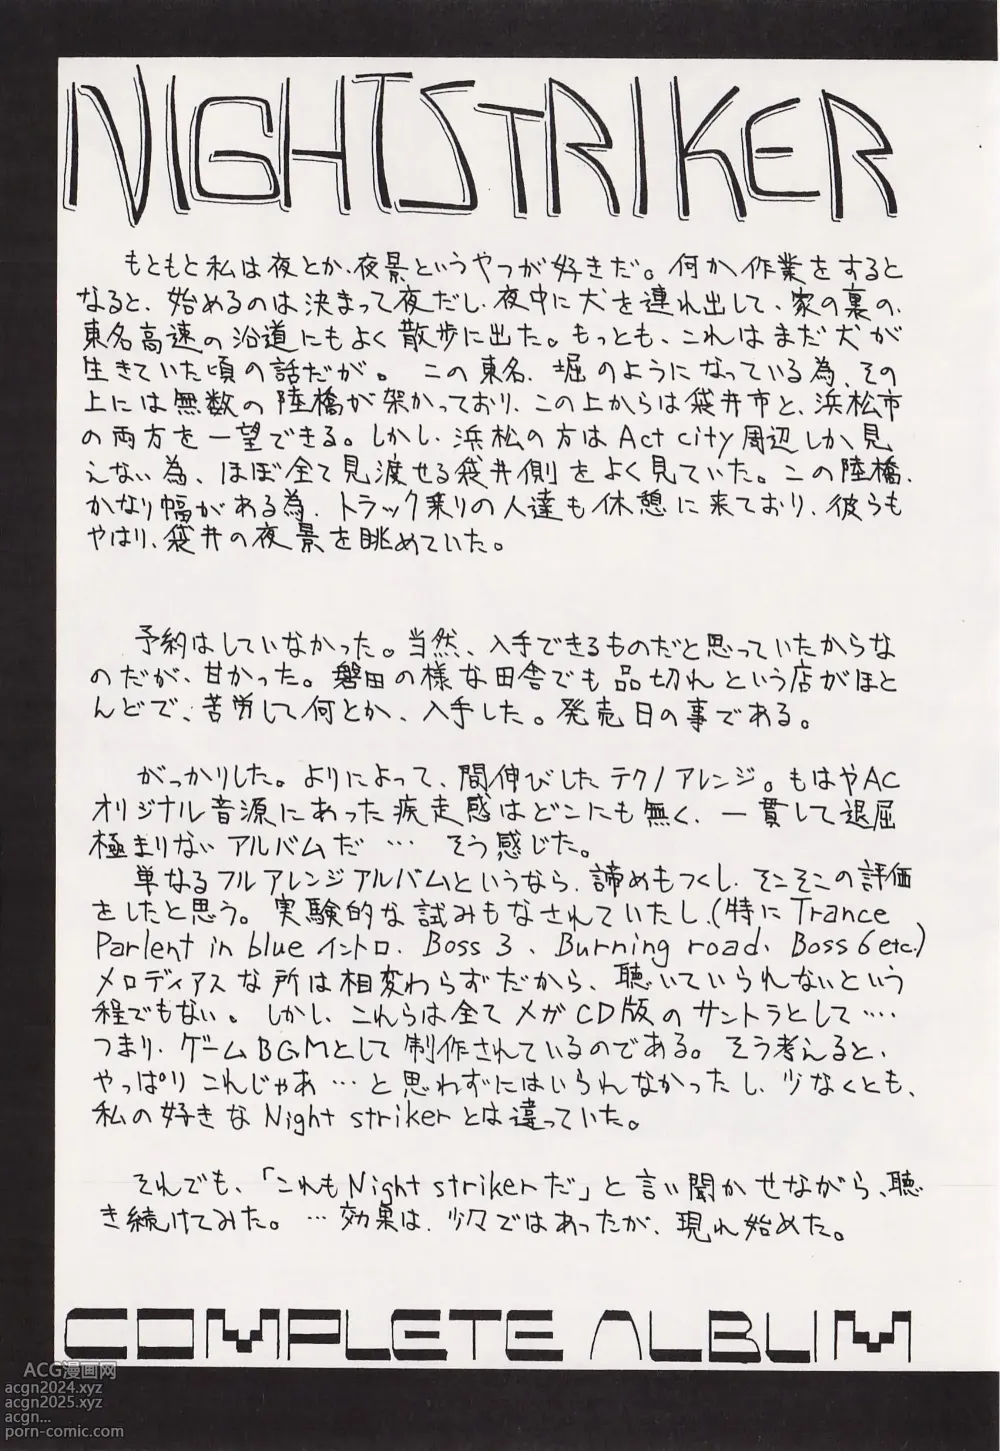 NIGHTSTRIKER
もともと私は夜とか、夜景というやつが好きだ。何か作業をすると
なると、始めるのは決まって夜だし、夜中に犬を連れ出して、家の裏の、
東名高速の沿道にもよく散歩に出た。もっとも、これはまだ犬が
生きていた頃の話だが。 この東名、堀のようになっている為、その
上には無数の陸橋が架かっており、この上からは袋井市と、浜松市
の両方を一望できる。しかし、浜松の方はAct city周辺しか見
えない為、ほぼ全て見渡せる袋井側をよく見ていた。この陸橋、
かなり幅がある為、トラック乗りの人達も休憩に来ており、彼らも
やはり、袋井の夜景を眺めていた。
予約はしていなかった。当然、入手できるものだと思っていたからな
のだが、甘かった。磐田の様な田舎でも品切れという店がほと
んどで、苦労して何とか、入手した。発売日の事である。
がっかりした。よりによって、間伸びしたテクノアレンジ。もはやAC
オリジナル音源にあった疾走感はどこにも無く、一貫して退屈
極まりないアルバムだ… そう感じた。
単なるフルアレンジアルバムというなら、諦めもつくし、そこそこの評価
をしたと思う。実験的な試みもなされていたし、(特にTrance
Parlent in blueイントロ、Boss 3、Burning road、Boss 6 etc.)
メロディアスな所は相変わらずだから、聴いていられないという
程でもない。しかし、これらは全てメガCD版のサントラとして…
つまり、ゲームBGMとして制作されているのである。そう考えると、
やっぱりこれじゃあ…と思わずにはいられなかったし、少なくとも、
私の好きなNight strikerとは違っていた。
それでも、「これもNight strikerだ」と言い聞かせながら、聴
き続けてみた。…効果は、少々ではあったが、現れ始めた。
COMPLETE ALBUM
ACG漫画网
acgn2024.xyz
acgn2025.xyz
acgn...
porn-comic.com